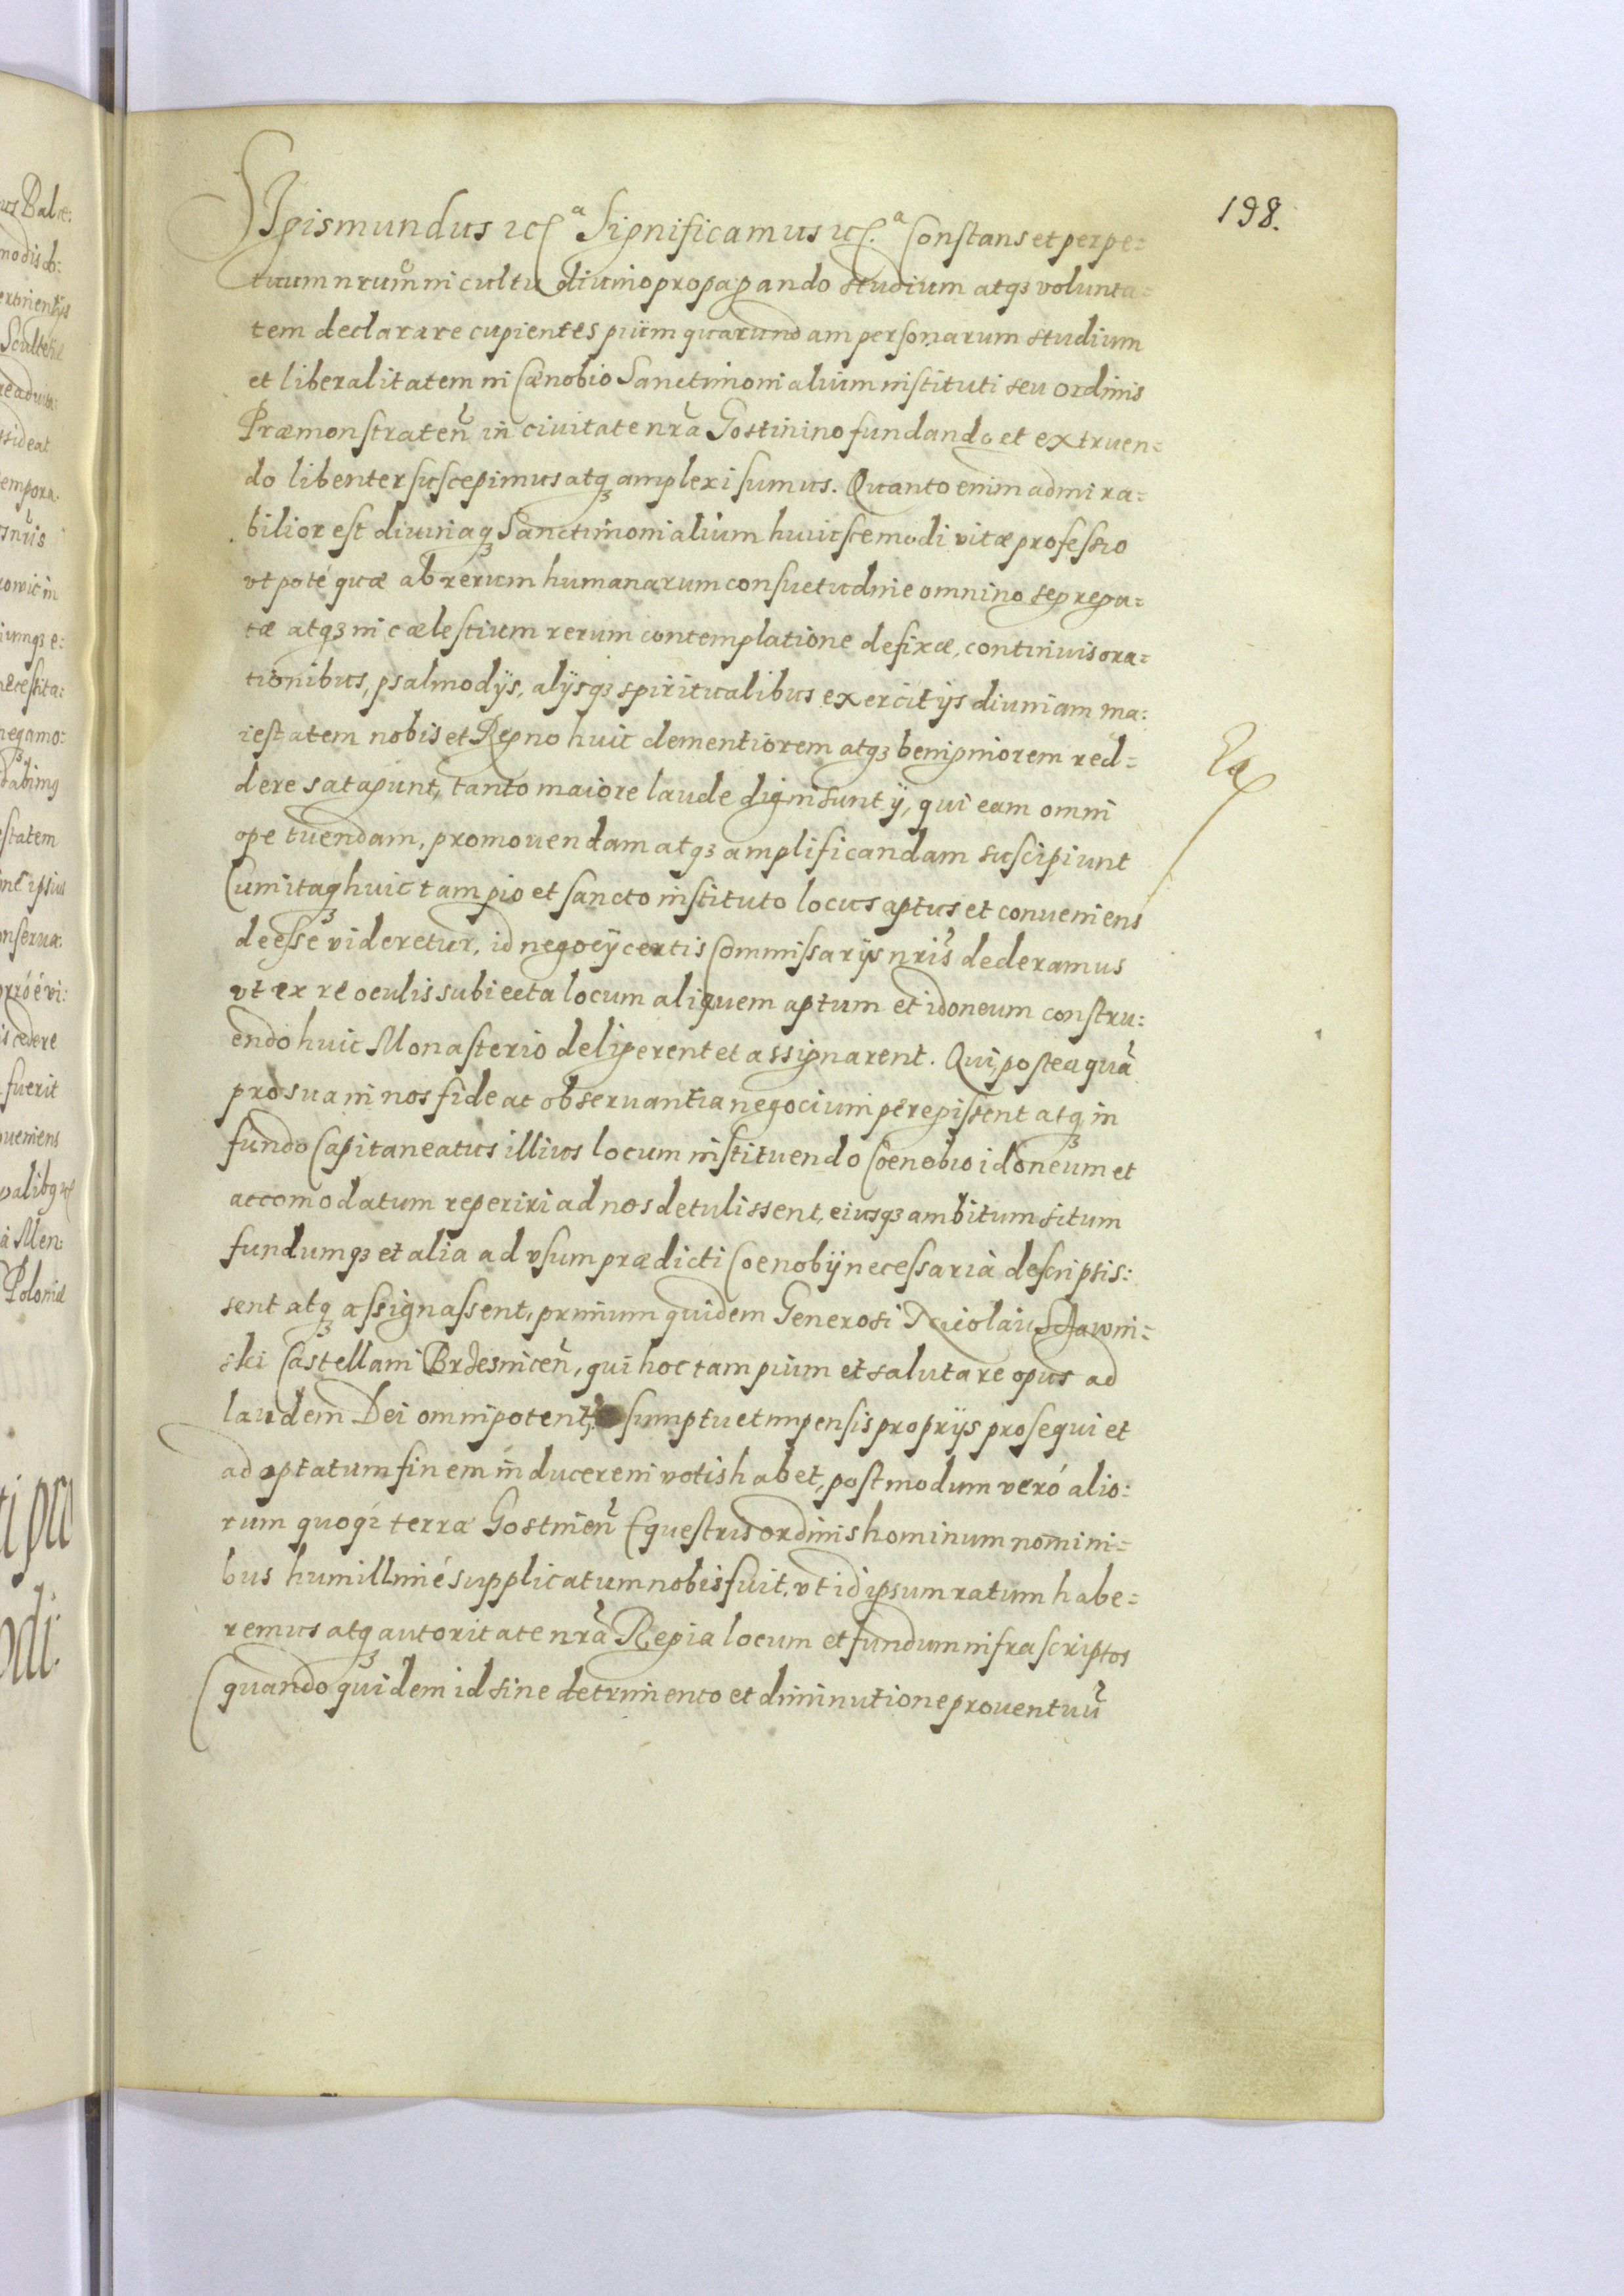 198.
Sigismundus etcᵃ Significamus etc.ᵃ Constans et perpe=
tuum nrum in cultu diuino propagando studium atqз volunta=
tem declarare cupientes pium quarundam personarum studium
et liberalitatem in Cænobio Sanctimonialium instituti seu ordinis
Præmonstrateñ in ciuitate nra Gostinino fundando et extruen=
do libenter suscepimus atqз amplexi sumus. Quanto enim admira=
bilior est diuinaqз Sanctimonialium huiuscemodi vitæ professio
vt poté quæ ab rerum humanarum consuetudine omnino segrega=
tæ atqз in cælestium rerum contemplatione defixæ, continuis ora=
tionibus, psalmodijs, alijsqз spiritualibus exercitijs diuinam ma:
iestatem nobis et Regno huic clementiorem atqз benigniorem red=
dere satagunt, tanto maiore laude digni sunt ij, qui eam omni
ope tuendam, promouendam atqз amplificandam suscipiunt
Cum itaqз huic tam pio et sancto instituto locus aptus et conueniens
deesse videretur, id negocij certis Commissarijs nris dederamus
vt ex re oculis subiecta locum aliquem aptum et idoneum constru:
endo huic Monasterio deligerent et assignarent. Qui posteaquā
pro sua in nos fide ac obseruantia negocium peregissent atqз in
fundo Capitaneatus illius locum instituendo Coenobio idoneum et
accomodatum reperiri ad nos detulissent, eiusqз ambitum situm
fundumqз et alia ad vsum prædicti Coenobij necessaria descripsis:
sent atqз assignassent, primum quidem Generosi Nicolai Sławni=
ski Castellani Brzesniceñ, qui hoc tam pium et salutare opus ad
laudem Dei omnipotent, sumptu et impensis proprijs prosequi et
ad optatum finem inducere in votis habet, postmodum veró alio:
rum quoqз terræ Gostineñ Equestris ordinis hominum nomini=
bus humillimé supplicatum nobis fuit, vt id ipsum ratum habe=
remus atqз autoritate nra Regia locum et fundum infrascriptos
(quando quidem id sine detrimento et diminutione prouentuū